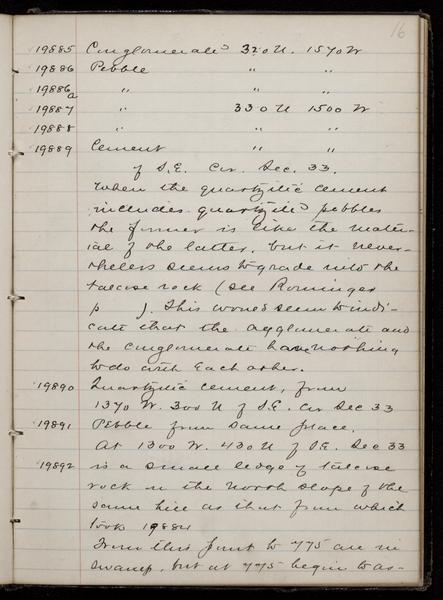 16
19885 Conglomerate 320 N. 1570 W
19886 Pebble " "
19886a " " "
19887 " 330 N 1500 W
19888 " " "
19889 Cement " "
of S.E. Cor. Sec. 33.
When the quartzitic cement
includes quartzitic pebbles
the former is like the mater-
ial of the latter, but it never-
theless seems to grade into the
talcose rock (see Rominger
p ). This would seem to indi-
cate that the agglomerate and
the conglomerate have nothing
to do with each other.
19890 Quartzitic cement, from
1370 W. 300 N of S.E. Cor Sec 33
19891 Pebble from same place.
At 1300 W. 430 N of S.E. Sec 33
19892 is a small ledge of talcose
rock on the north slope of the
same hill as that from which
took 19884
From this point to 775 are in
swamp, but at 775 begin to as-